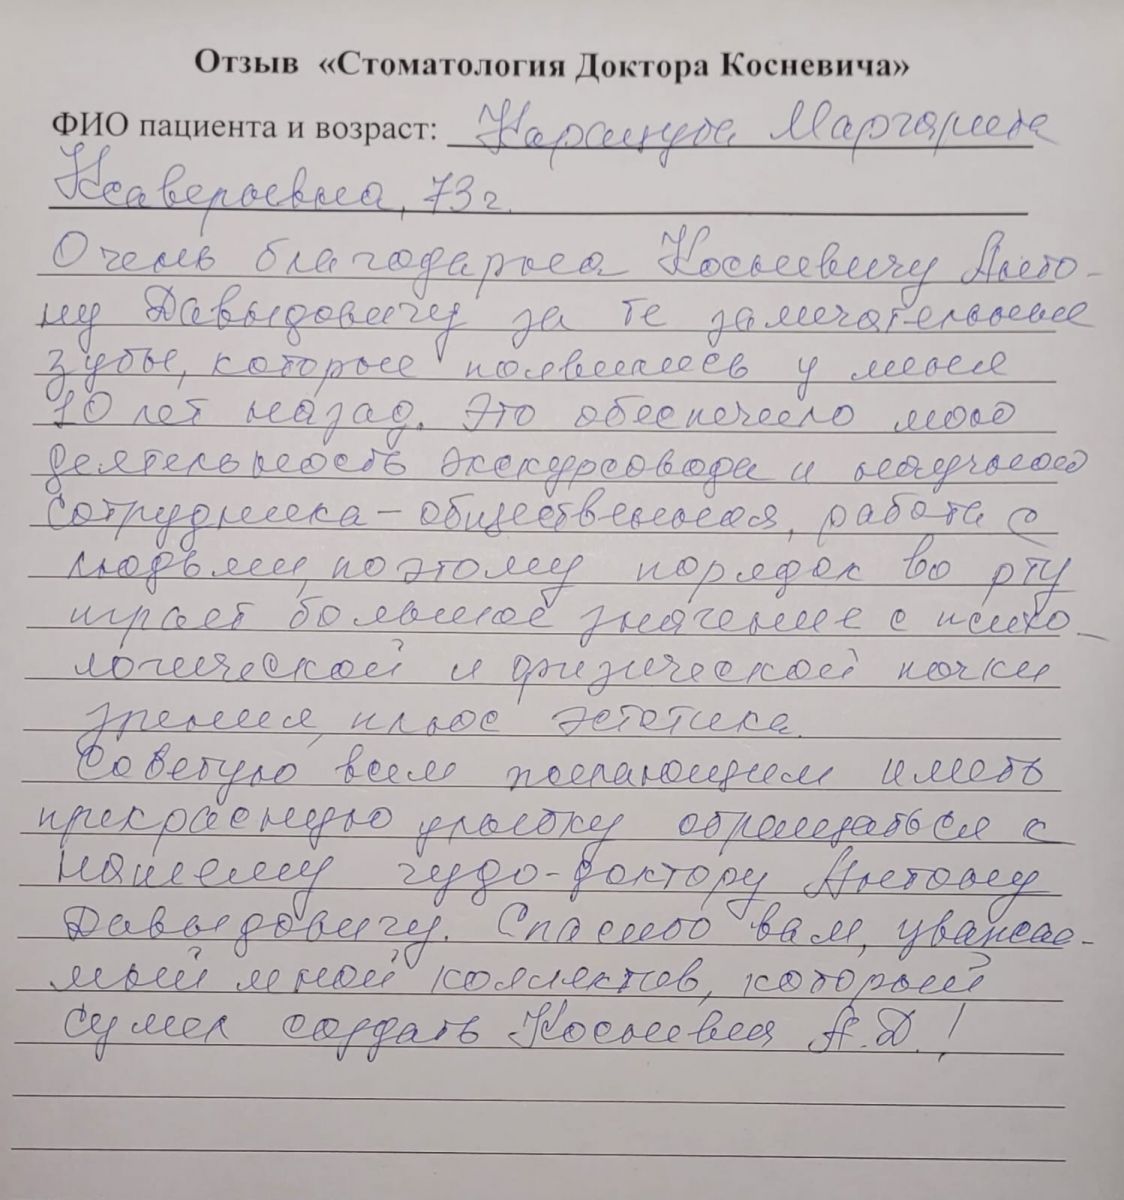 Отзыв «Стоматология Доктора Косневича»
ФИО пациента и возраст: Маргарита
Ксаверьевна, 73 г.
Очень благодарна Косневичу Анто-
ну Давыдовичу за те замечательные
зубы, которые появились у меня
10 лет назад. Это обеспечило мою
деятельность экскурсовода и научного
сотрудника - общественная, работа с
людьми, поэтому порядок во рту
играет большое значение с психо-
логической и физической точки
зрения, плюс эстетика.
Советую всем желающим иметь
прекрасную улыбку обращаться к
нашему чудо-доктору Антону
Давыдовичу. Спасибо вам, уважае-
мый мной коллектив, который
сумел создать Косневич А.Д.!